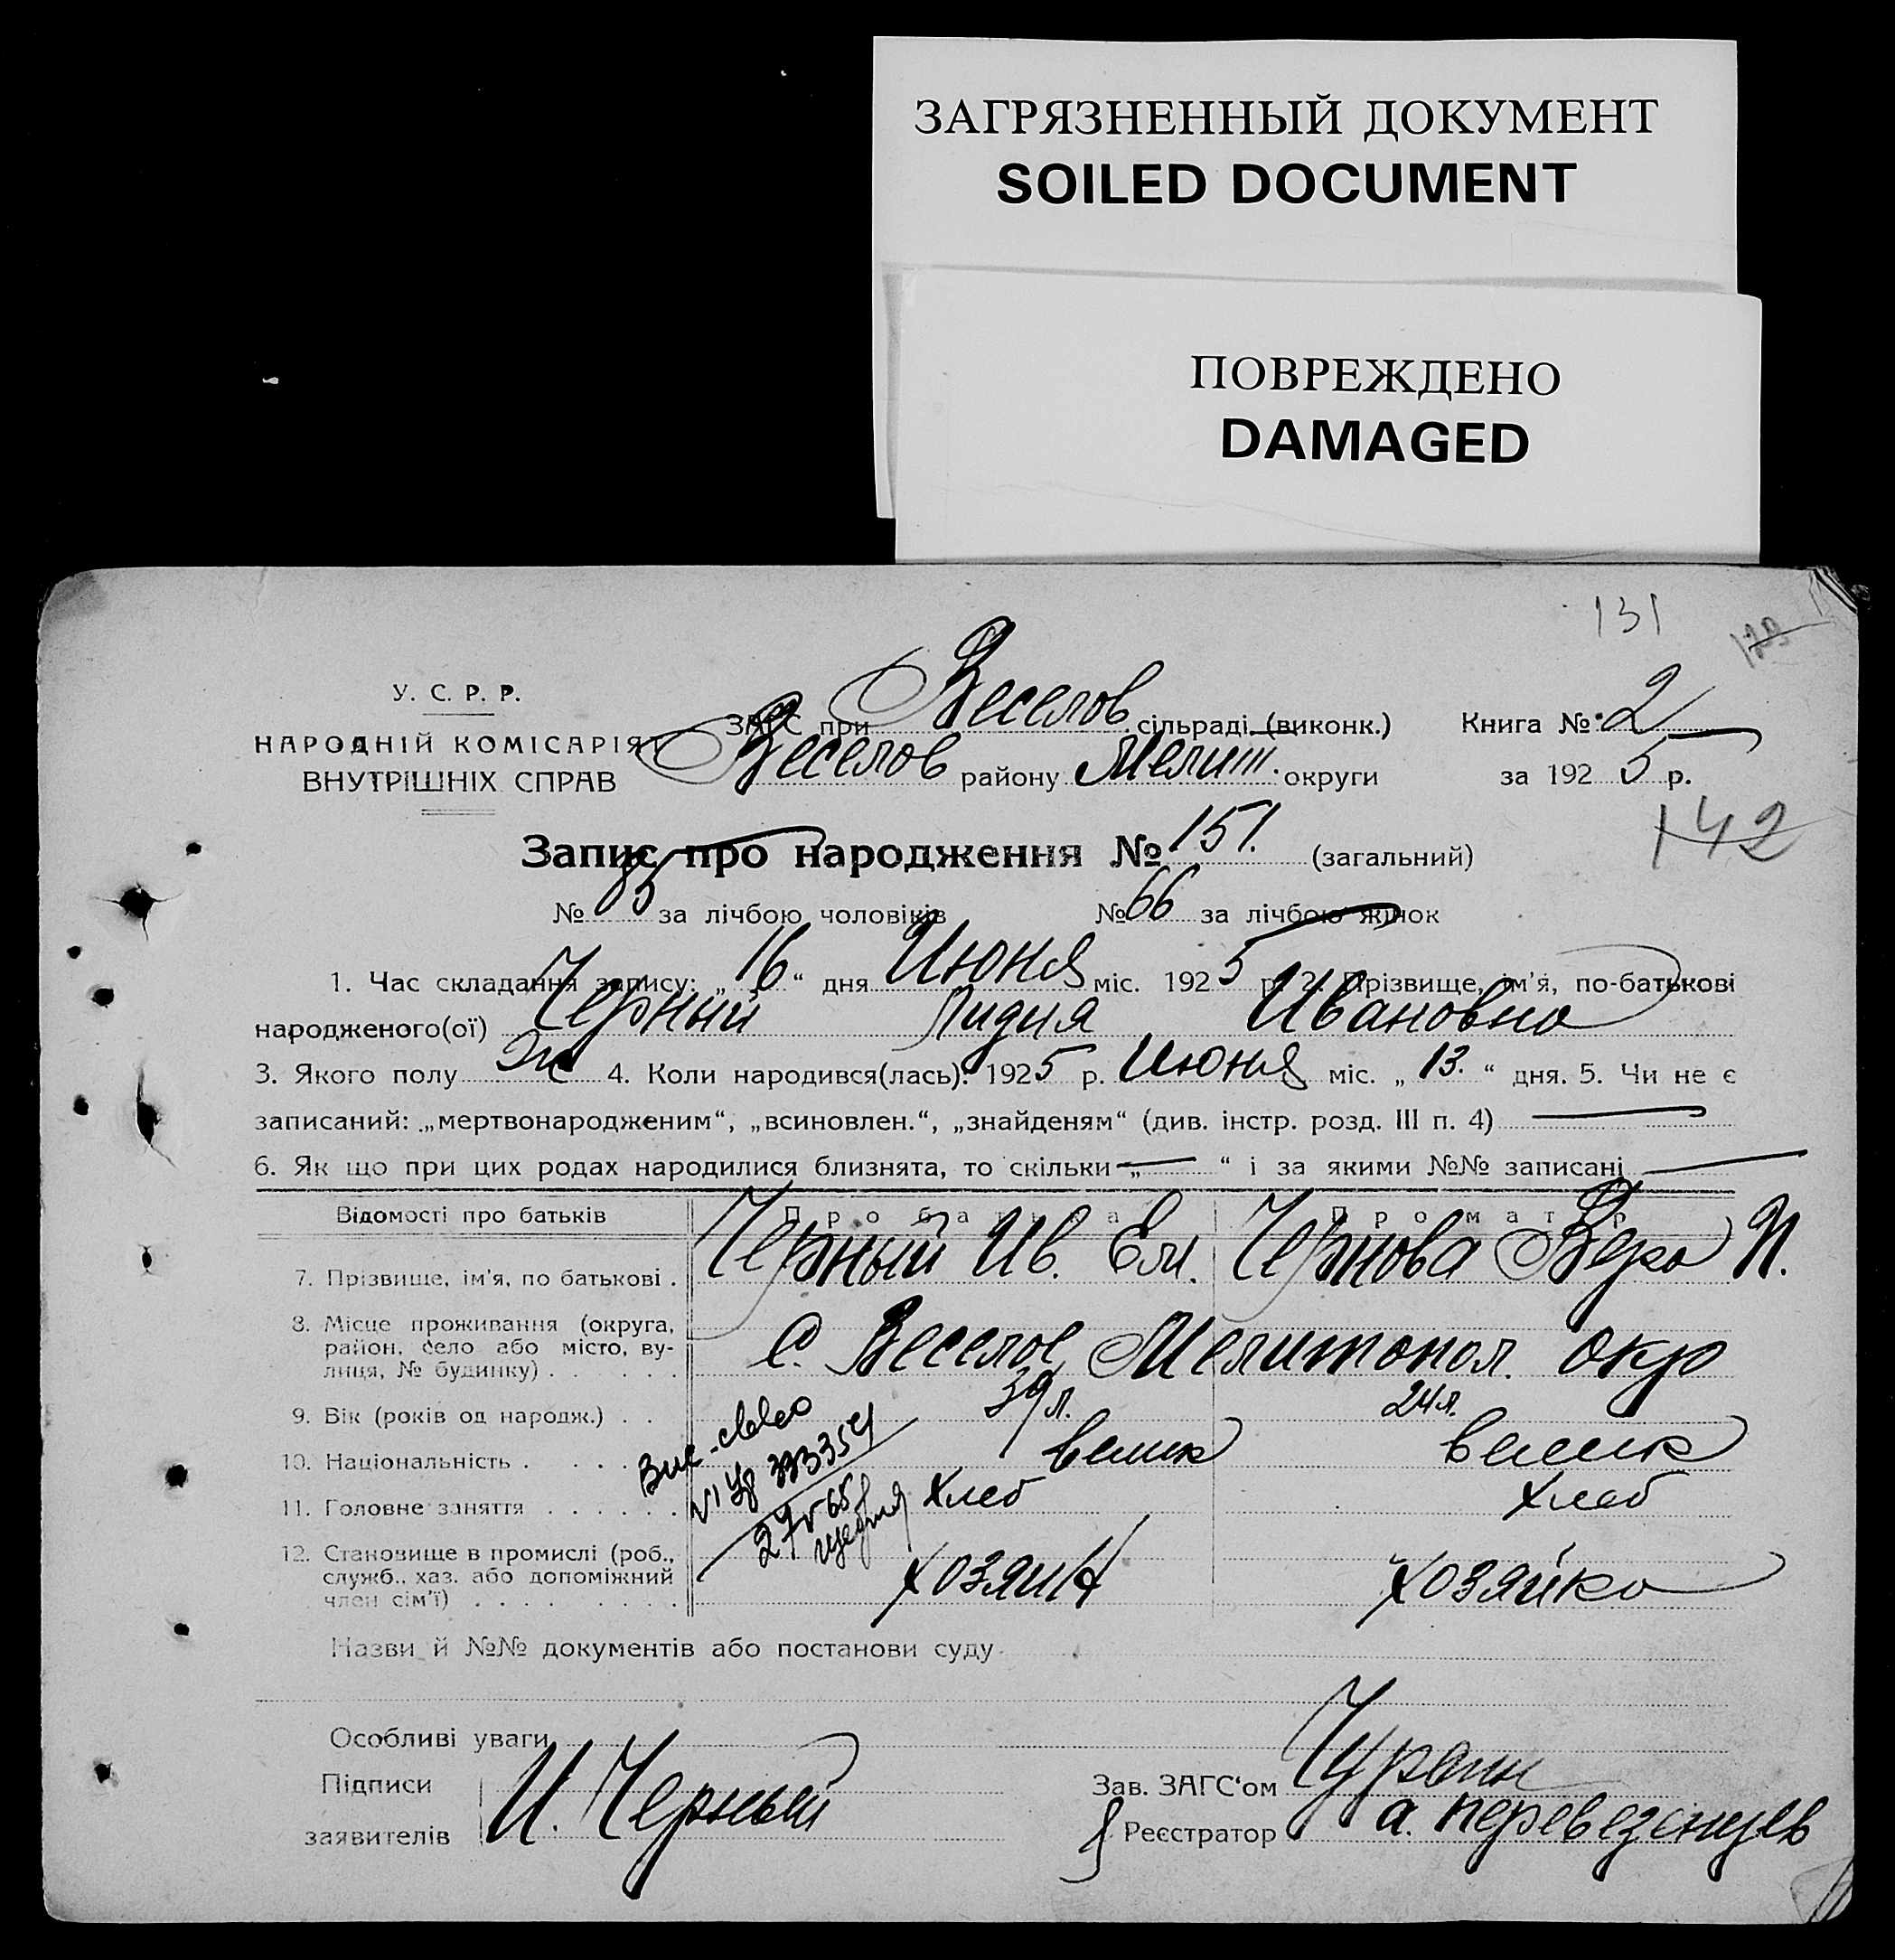 ЗАГРЯЗНЕННЫЙ ДОКУМЕНТ
SOILED DOCUMENT
ПОВРЕЖДЕНО
DAMAGED
131
У. С. Р. Р.
НАРОДНІЙ КОМІСАРІЯТ
ВНУТРІШНІХ СПРАВ
ЗАГС при Веселов сільраді (виконк.) Книга № 2
Веселов району Мелит. округи за 1925 р.
142
Запис про народження № 151. (загальний)
№ 85 за лічбою чоловіків № 66 за лічбою жінок
1. Час складання запису: „16“ дня Июня міс. 1925 р. 2. Прізвище, ім'я, по-батькові
народженого(ої) Черный Лидия Ивановна
3. Якого полу Ж 4. Коли народився(лась): 1925 р. Июня міс. „13.“ дня. 5. Чи не є
записаний: „мертвонародженим“, „всиновлен.“, „знайденям“ (див. інстр. розд. III п. 4) —
6. Як що при цих родах народилися близнята, то скільки „—“ і за якими №№ записані —
Відомості про батьків Про батька Про матір
7. Прізвище, ім'я, по батькові . Черный Ив. Ем. Чернова Вера П.
8. Місце проживання (округа,
район, село або місто, ву-
лиця, № будинку) . . . . . . С. Веселое Мелитопол. окр
9. Вік (років од народж.) . . 39 л. 24 л.
10. Національність . . . . . велик велик
11. Головне заняття . . . . . . хлеб хлеб
12. Становище в промислі (роб.,
служб., хаз. або допоміжний
член сім'ї) . . . . . . . . хозяин хозяйка
Назви й №№ документів або постанови суду
Особливі уваги
Підписи
заявителів И. Черный
Зав. ЗАГС'ом
Реєстратор А. Перевезенцев